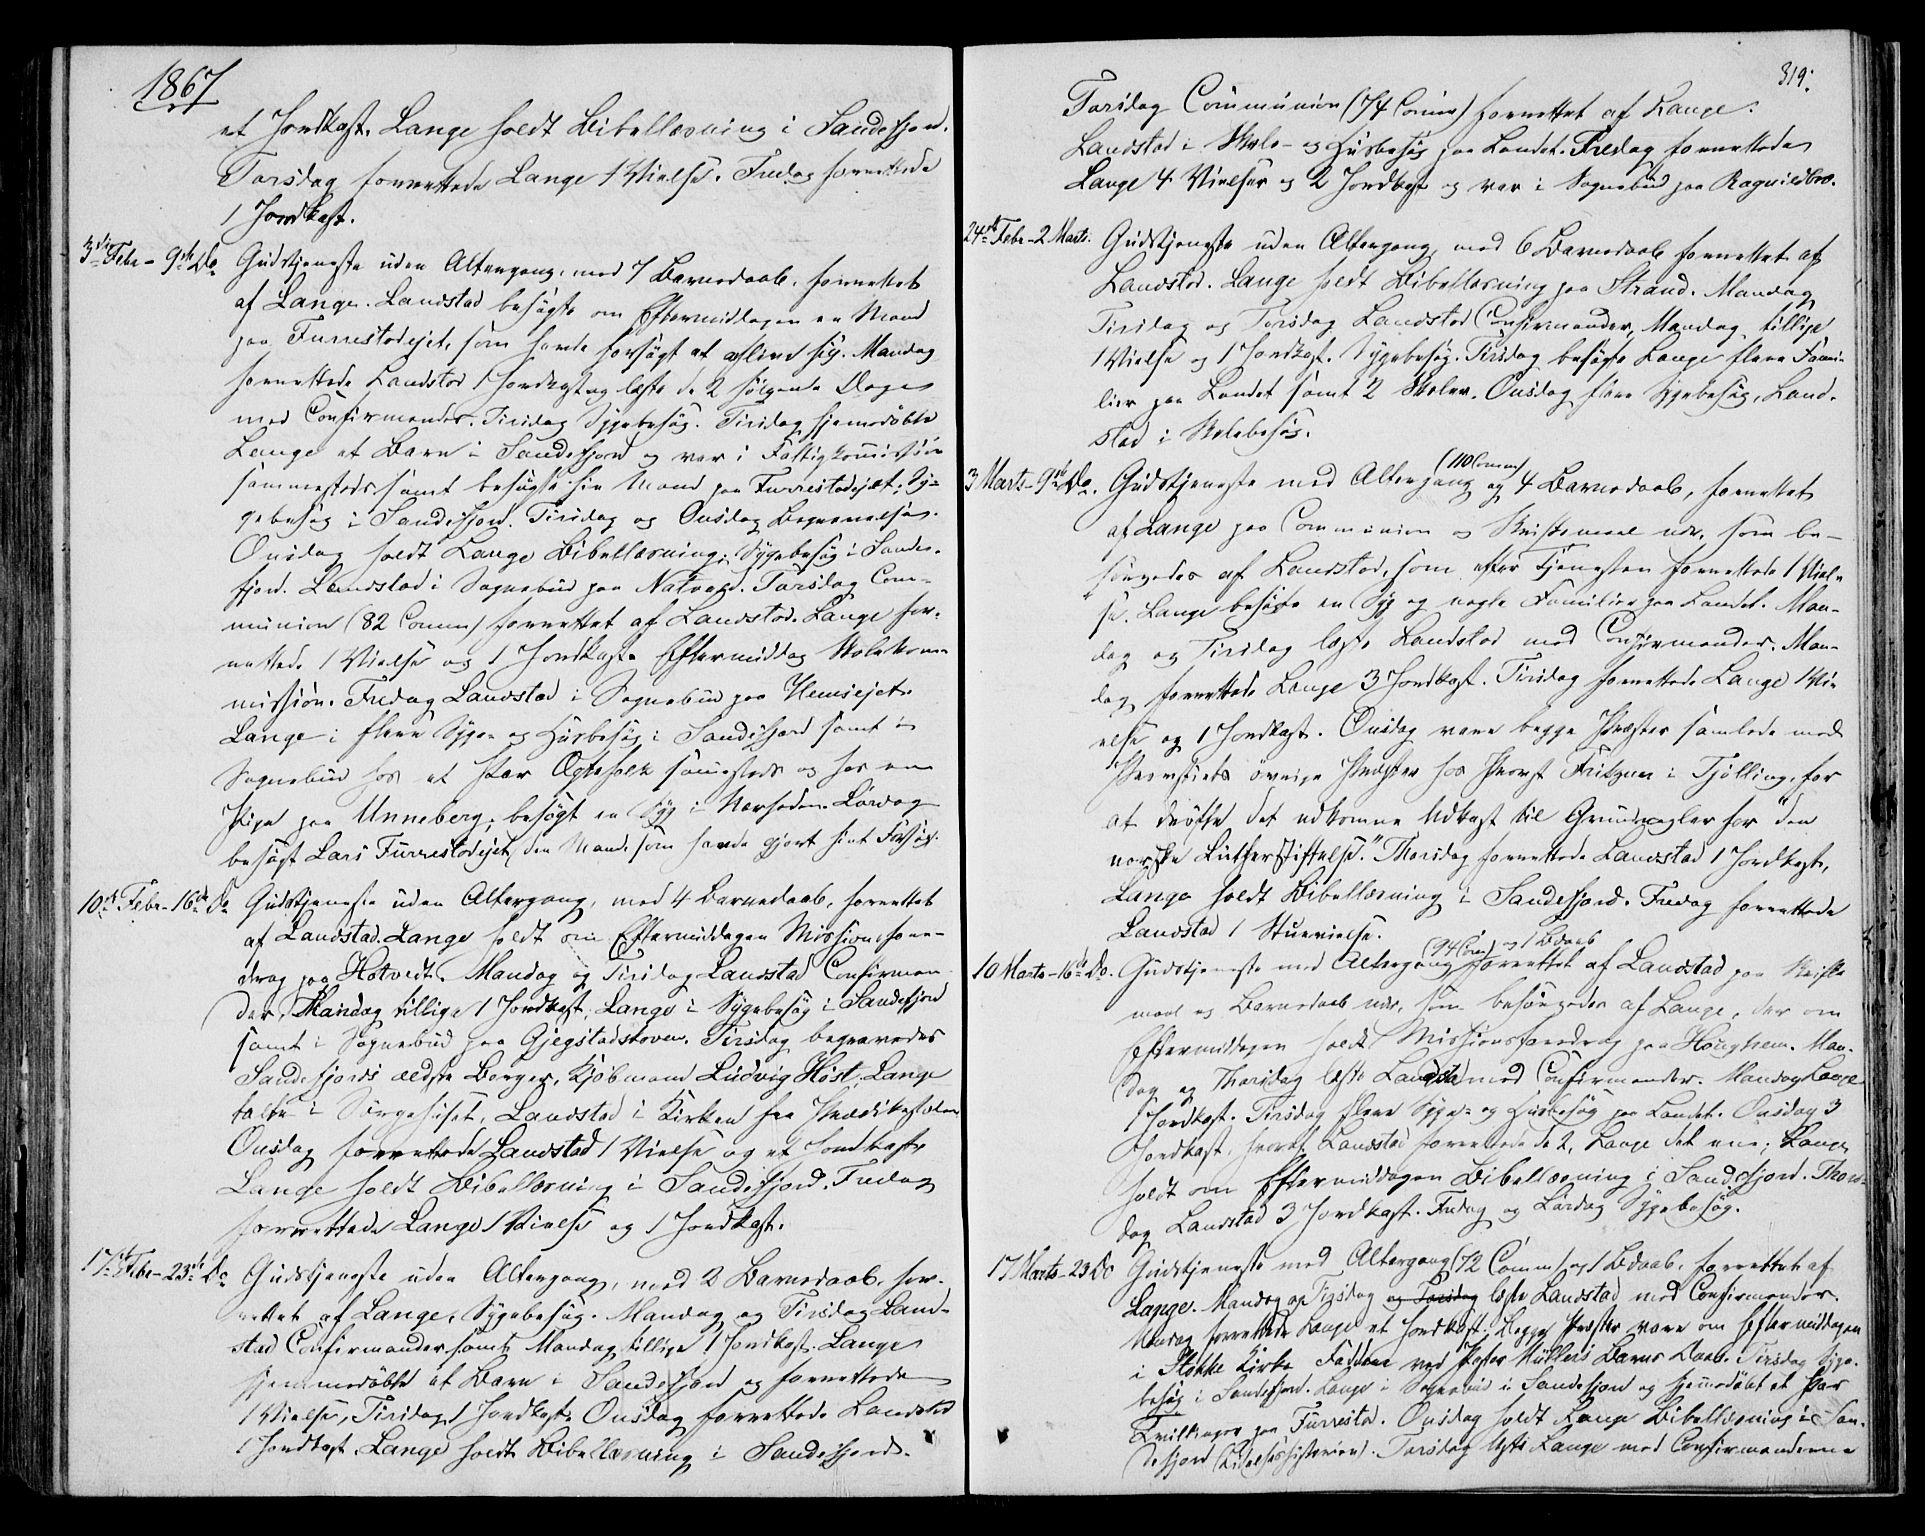 1867
et Jordkast. Lange holdt Bibellæsning i Sandefjord.
Torsdag forrettede Lange 1 Vielse. Fredag forrettede
1 Jordkast.
3die Febr - 9de Do Gudstjeneste uden Altergang, med 7 Barnedaab, forrettet
af Lange. Landstad besøgte om Eftermiddagen en Mand
paa Furrestadejet, som havde forsøgt at aflive sig. Mandag
forrettede Landstad 1 Jordkast og læste de 2 følgende Dage
med Confirmander. Tirsdag Sygebesøg. Tirsdag hjemmedøbte
Lange et Barn i Sandefjord og var i Fattigkommission
sammesteds samt besøgte hin Mand paa Furrestadejet; Sy-
gebesøg i Sandefjord. Tirsdag og Onsdag Begravelse.
Onsdag holdt Lange Bibellæsning; Sygebesøg i Sande-
fjord. Landstad i Sognebud paa Natvald. Torsdag Com-
munion (82 Comm) forrettet af Landstad. Lange for-
rettede 1 Vielse og 1 Jordkast. Eftermiddag Skolekom-
mission. Fredag Landstad i Sognebud paa Hemsejet.
Lange i flere Syge- og Husbesøg i Sandefjord samt i
Sognebud hos et Par Ægtefolk sammesteds og hos en
Pige paa Unneberg; besøgt en Syg i Nærheden. Lørdag
besøgt Lars Furrestadejet, den Mand som havde gjort hint Forsøg.
10de Febr - 16de Do Gudstjeneste uden Altergang, med 4 Barnedaab, forrettet
af Landstad. Lange holdt om Eftermiddagen Missionsfore-
drag paa Hotvedt. Mandag og Tirsdag Landstad Confirman-
der, Mandag tillige 1 Jordkast; Lange i Sygebesøg i Sandefjord
samt i Sognebud paa Gjegstadskoven. Tirsdag begravedes
Sandefjords ældste Borger, Kjøbmand Ludvig Høst; Lange
talte i Sørgehuset, Landstad i Kirken fra Prædikestolen
Onsdag forrettede Landstad 1 Vielse og et Jordkast.
Lange holdt Bibellæsning i Sandefjord. Fredag
forrettede Lange 1 Vielse og 1 Jordkast.
17de Febr - 23de Do Gudstjeneste uden Altergang, med 2 Barnedaab, for-
rettet af Lange, Sygebesøg. Mandag og Tirsdag Land-
stad Confirmander samt Mandag tillige 1 Jordkast. Lange
hjemmedøbte et Barn i Sandefjord og forrettede
1 Vielse, Tirsdag 1 Jordkast. Onsdag forrettede Landstad
1 Jordkast. Lange holdt Bibellæsning i Sandefjord.
319.
Torsdag Communion (74 Comm) forrettet af Lange.
Landstad i Skole- og Husbesøg paa Landet. Fredag forrettede
Lange 4 Vielser og 2 Jordkast og var i Sognebud paa Ragnildbro.
24de Febr - 2 Marts. Gudstjeneste uden Altergang med 6 Barnedaab forrettet af
Landstad. Lange holdt Bibellæsning paa Strand. Mandag
Tirsdag og Torsdag Landstad Confirmander, Mandag tillige
1 Vielse og 1 Jordkast. Sygebesøg. Tirsdag besøgte Lange flere Fami-
lier paa Landet samt 2 Skoler. Onsdag flere Sygebesøg, Land-
stad i Skolebesøg.
3 Marts - 9de Do. Gudstjeneste med Altergang (110 Comm) og 4 Barnedaab, forrettet
af Lange paa Communion og Skriftemaal nær, som be-
sørgedes af Landstad, som efter Tjenesten forrettede 1 Viel-
se. Lange besøgte en Syg og nogle Familier paa Landet. Man-
dag og Tirsdag læste Landstad med Confirmander. Man-
dag forrettede Lange 3 Jordkast. Tirsdag forrettede Lange 1 Vi-
else og 1 Jordkast. Onsdag vare begge Præster samlede med
Provstiets øvrige Præster hos Provst Fritzner i Tjølling, for
at drøfte det udkomne Udkast til Grundregler for "den
norske Lutherstiftelse." Thorsdag forrettede Landstad 1 Jordkast,
Lange holdt Bibellæsning i Sandefjord. Fredag forrettede
Landstad 1 Stuevielse.
10 Marts - 16de Do. Gudstjeneste med Altergang (94 Com) og 1 Bdaab forrettet af Landstad paa Skrifte-
maal og Barnedaab nær, som besørgedes af Lange, der om
Eftermiddagen holdt Missionsforedrag paa Haughem. Man-
dag og Thorsdag læste Landstad med Confirmander. Mandag Lange
1 Jordkast. Tirsdag flere Syge- og Husbesøg paa Landet. Onsdag 3
Jordkast, hvoraf Landstad forrettede de 2, Lange det ene; Lange
holdt om Eftermiddagen Bibellæsning i Sandefjord. Thors-
dag Landstad 3 Jordkast. Fredag og Lørdag Sygebesøg.
17 Marts - 23 Do Gudstjeneste med Altergang (72 Comm) og 1 Bdaab, forrettet af
Lange. Mandag og Tirsdag og Torsdag læste Landstad med Confirmander.
Mandag forrettede Lange et Jordkast; begge Præster vare om Eftermiddagen
i Stokke Kirke Faddere ved Pastor Müllers Barns Daab. Tirsdag Syge-
besøg i Sandefjord. Lange i Sognebud i Sandefjord og hjemmedøbt et Par
Tvillinger paa Furrestad. Onsdag holdt Lange Bibellæsning i San-
defjord (Lidelseshistorien). Torsdag læste Lange med Confirmanderne